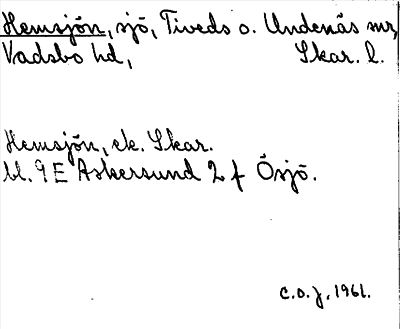 Hemsjön, sjö, Tiveds o. Undenäs snr,
Vadsbo hd, Skar. l.
Hemsjön, ek. Skar.
bl. 9 E Askersund 2 f Ösjö.
C.O.J. 1961.